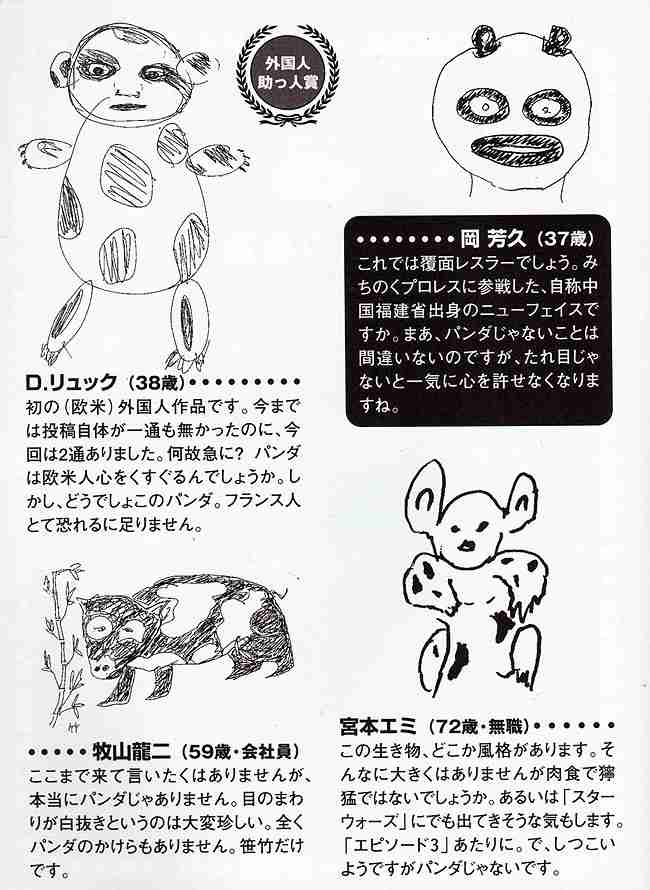 外国人
助っ人賞
D.リュック（38歳）・・・・・・・・・
初の（欧米）外国人作品です。今まで
は投稿自体が一通も無かったのに、今
回は2通ありました。何故急に？　パンダ
は欧米人心をくすぐるんでしょうか。し
かし、どうでしょこのパンダ。フランス人
とて恐れるに足りません。
・・・・・・・・岡 芳久（37歳）
これでは覆面レスラーでしょう。み
ちのくプロレスに参戦した、自称中
国福建省出身のニューフェイスで
すか。まあ、パンダじゃないことは
間違いないのですが、たれ目じゃ
ないと一気に心を許せなくなりま
すね。
・・・・・牧山龍二（59歳・会社員）
ここまで来て言いたくはありませんが、
本当にパンダじゃありません。目のまわ
りが白抜きというのは大変珍しい。全く
パンダのかけらもありません。笹竹だけ
です。
宮本エミ（72歳・無職）・・・・・・
この生き物、どこか風格があります。そ
んなに大きくはありませんが肉食で獰
猛ではないでしょうか。あるいは「スター
ウォーズ」にでも出てきそうな気もします。
「エピソード3」あたりに。で、しつこい
ようですがパンダじゃないです。